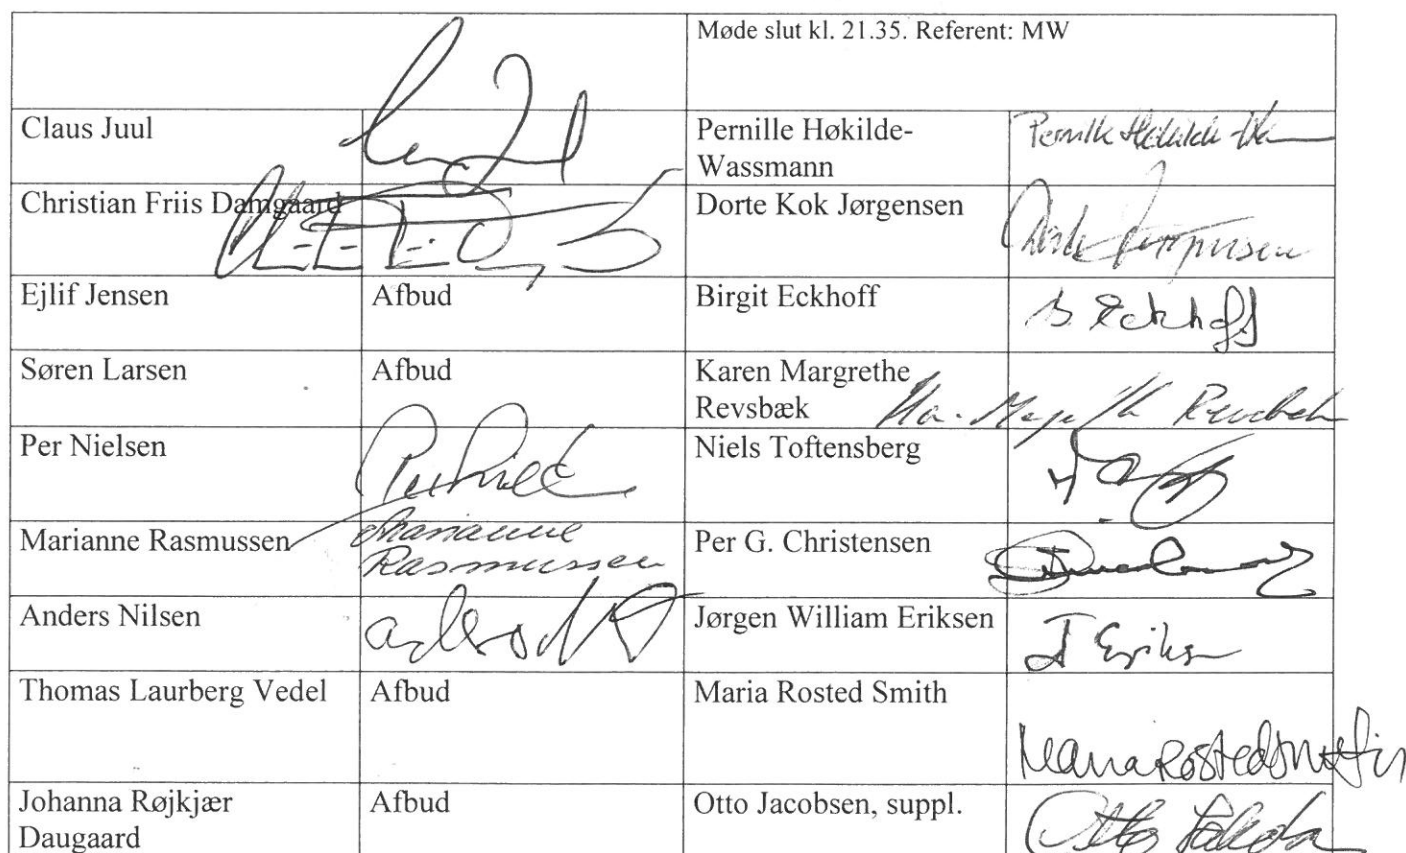 Møde slut kl. 21.35. Referent: MW
Claus Juul
Pernille Høkilde-
Wassmann
Christian Friis Damgaard
Dorte Kok Jørgensen
Ejlif Jensen
Afbud
Birgit Eckhoff
B. Eckhoff
Søren Larsen
Afbud
Karen Margrethe
Revsbæk
Per Nielsen
Niels Toftensberg
Marianne Rasmussen
Marianne
Rasmussen
Per G. Christensen
Anders Nilsen
Jørgen William Eriksen
J Eriksen
Thomas Laurberg Vedel
Afbud
Maria Rosted Smith
Johanna Røjkjær
Daugaard
Afbud
Otto Jacobsen, suppl.